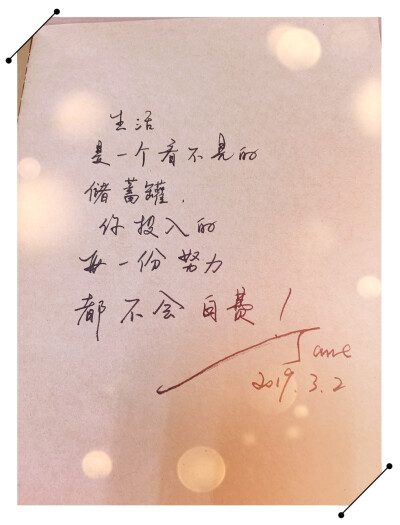 生活
是一个看不见的
储蓄罐，
你投入的
每一份努力
都不会白费！
Jane
2019.3.2